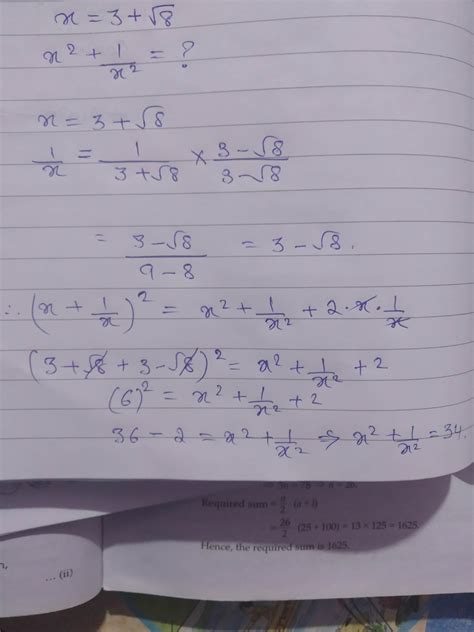 x = 3 + √8
x² + 1/x² = ?
x = 3 + √8
1/x = 1/(3 + √8) × (3 − √8)/(3 − √8)
= (3 − √8)/(9 − 8) = 3 − √8.
∴ (x + 1/x)² = x² + 1/x² + 2·x·1/x
(3 + √8 + 3 − √8)² = x² + 1/x² + 2
(6)² = x² + 1/x² + 2
36 − 2 = x² + 1/x² ⇒ x² + 1/x² = 34.
Required sum = n/2 · (a + l)
= 26/2 · (25 + 100) = 13 × 125 = 1625.
Hence, the required sum is 1625.
... (ii)